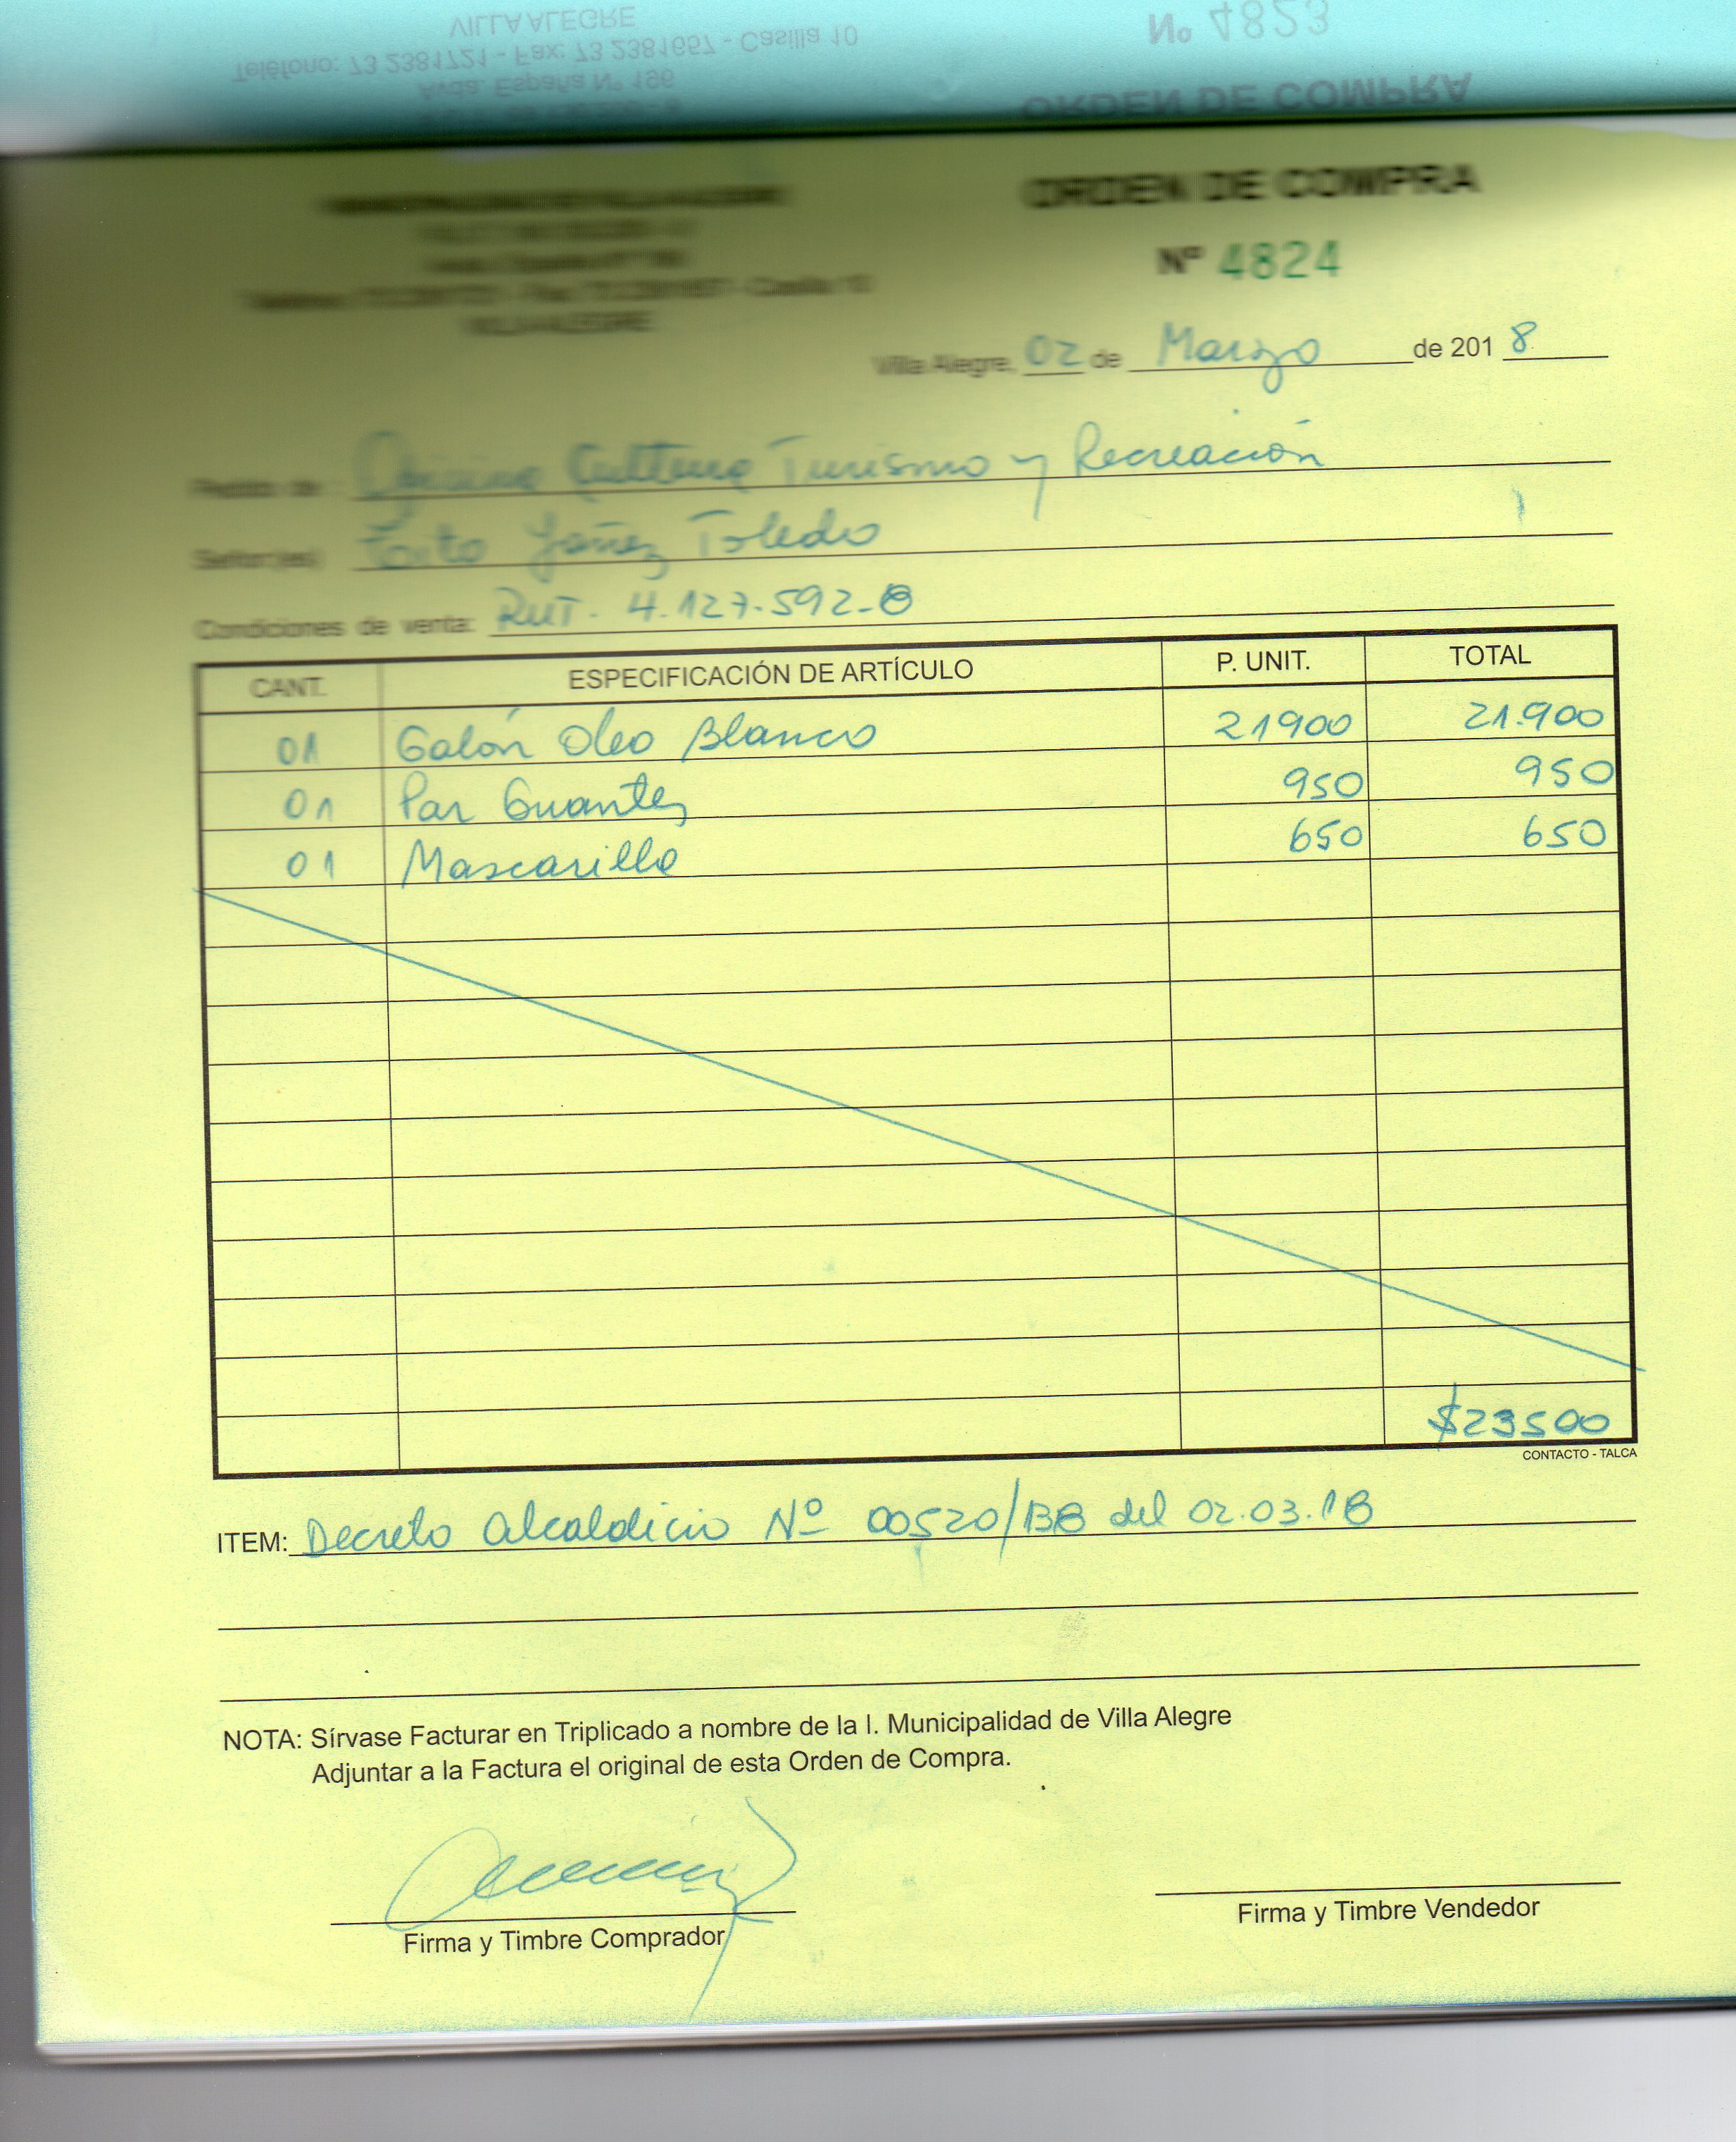 VILLA ALEGRE
Teléfono: 73 2381721 - Fax: 73 2381657 - Casilla 10
Avda. España Nº 196
Nº 4823
ORDEN DE COMPRA
ORDEN DE COMPRA
Nº 4824
VILLA ALEGRE
Villa Alegre, 02 de Marzo de 2018
Pedido de: Oficina Cultura Turismo y Recreación
Señor(es) Yañez Toledo
Condiciones de venta: RUT. 4.127.592-8
CANT. ESPECIFICACIÓN DE ARTÍCULO P. UNIT. TOTAL
01 Galón Oleo Blanco 21900 21.900
01 Par Guantes 950 950
01 Mascarilla 650 650
$23500
CONTACTO - TALCA
ITEM: Decreto Alcaldicio Nº 00520/138 del 02.03.18
NOTA: Sírvase Facturar en Triplicado a nombre de la I. Municipalidad de Villa Alegre
Adjuntar a la Factura el original de esta Orden de Compra.
Firma y Timbre Comprador
Firma y Timbre Vendedor